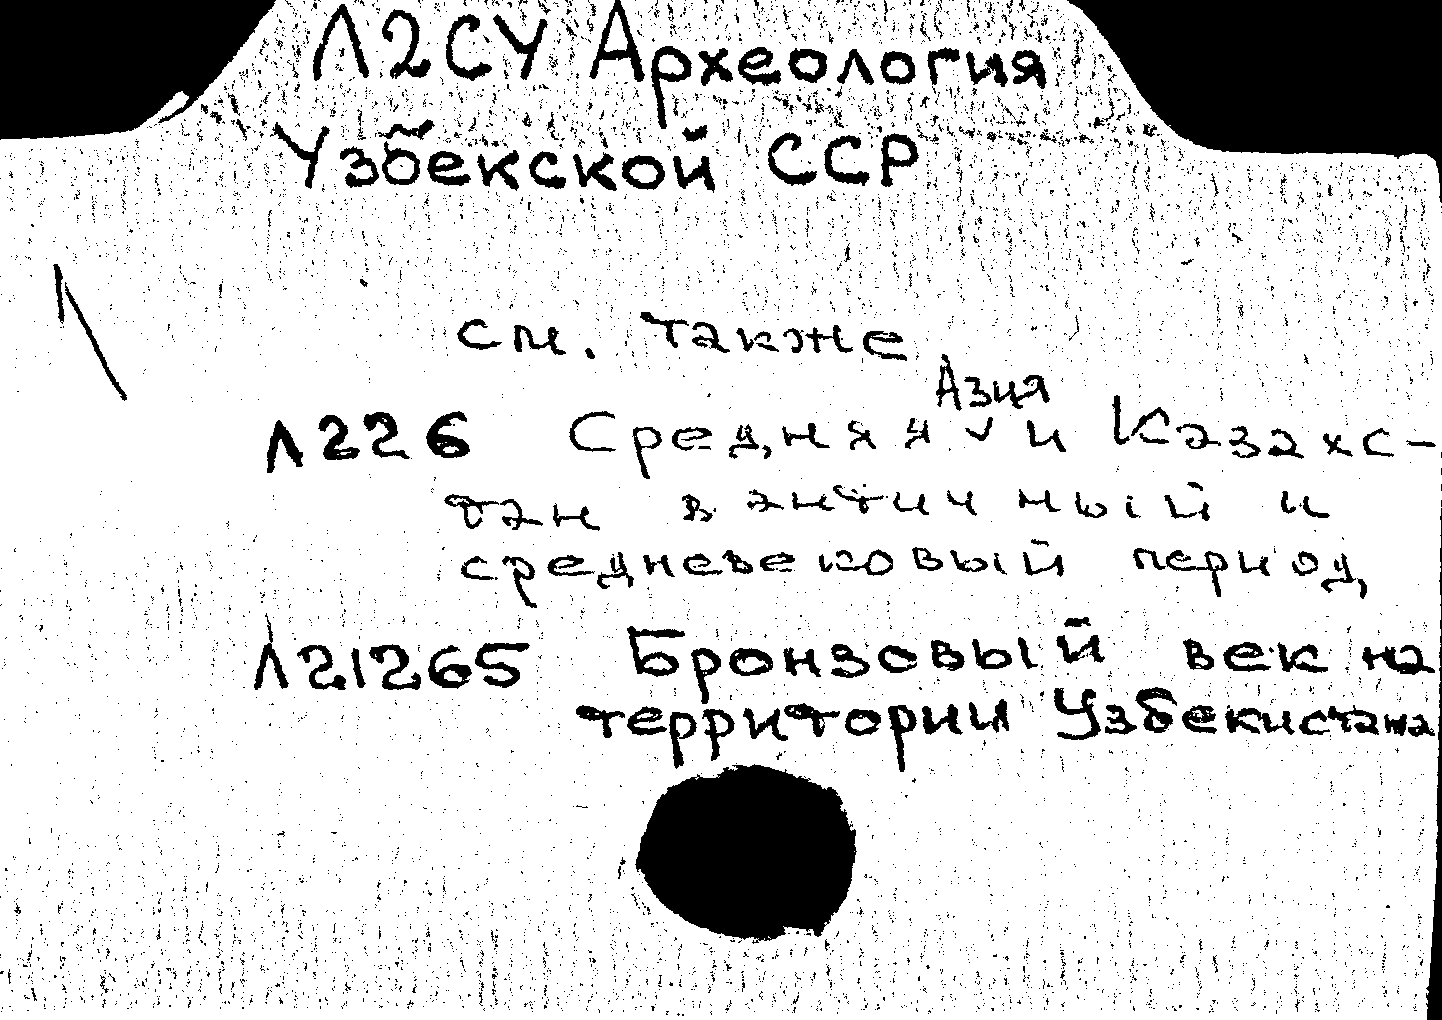 Л2СУ Археология
Узбекской ССР
см. также
Л226 Средняя Азия и Казахс-
тан в античный и
средневековый период
Л21265 Бронзовый век на
территории Узбекистана